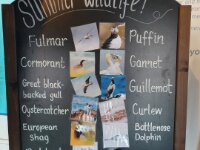 Summer wildlife!
Fulmar Puffin
Cormorant Gannet
Great black-
backed gull Guillemot
Oystercatcher Curlew
European Bottlenose
Shag Dolphin